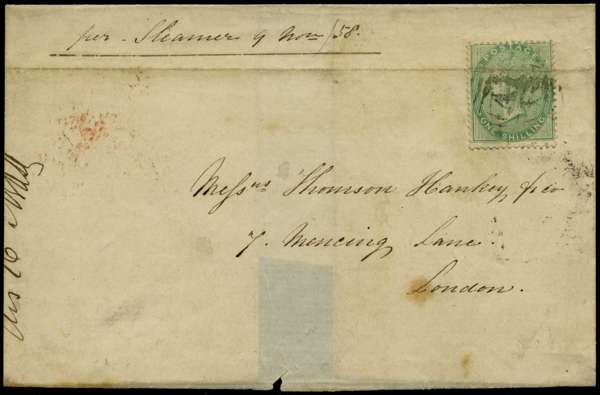 per Steamer 9 Nov /58.
POSTAGE
ONE SHILLING
Messrs Thomson Hankey & co
7. Mencing Lane.
London.